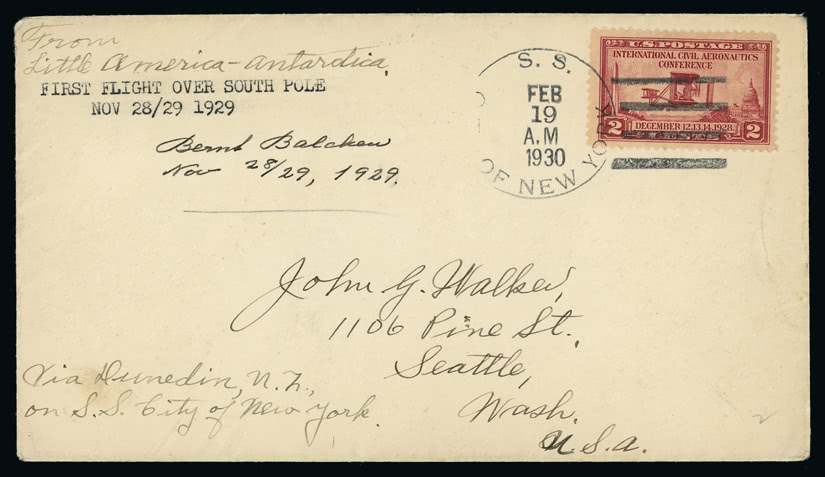 From
Little America-Antardica,
FIRST FLIGHT OVER SOUTH POLE
NOV 28/29 1929
Bernt Balchen
Nov 28/29, 1929.
S. S.
OF NEW YORK
FEB
19
A.M
1930
U.S. POSTAGE
INTERNATIONAL CIVIL AERONAUTICS
CONFERENCE
DECEMBER 12.13.14.1928
2 2
John G. Walker,
1106 Pine St.,
Seattle,
Wash.
U.S.A.
Via Dunedin, N.Z.,
on S.S. City of New York.